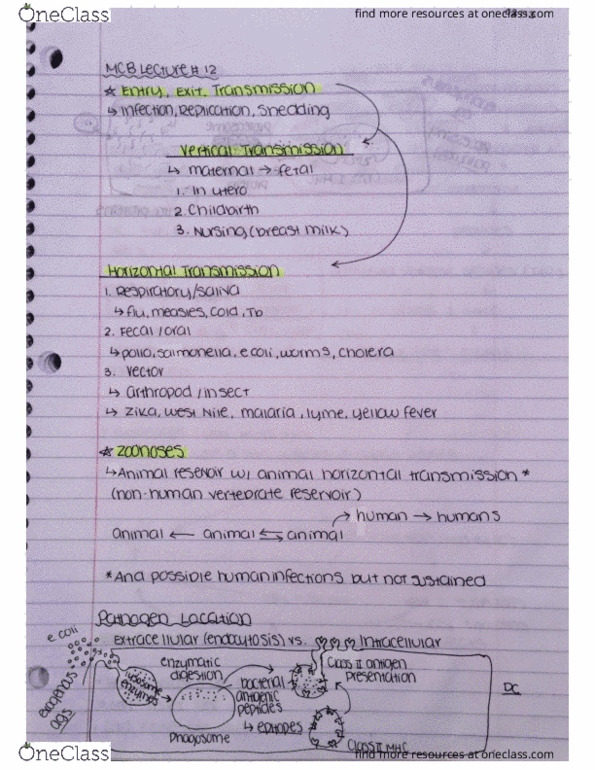 OneClass
find more resources at oneclass.com
MCB Lecture # 12
☆ Entry, Exit, Transmission
↳ infection, Replication, Shedding
Vertical Transmission
↳ maternal → fetal
1. In utero
2. Childbirth
3. Nursing (breast milk)
Horizontal Transmission
1. Respiratory/saliva
↳ flu, measles, cold, Tb
2. Fecal/oral
↳ polio, salmonella, e coli, worms, cholera
3. Vector
↳ arthropod/insect
↳ Zika, West Nile, malaria, lyme, yellow fever
☆ Zoonoses
↳ Animal reservoir w/ animal horizontal transmission *
(non-human vertebrate reservoir)
→ human → humans
animal ← animal ⇆ animal
*And possible human infections but not sustained
Pathogen Location
Extracellular (endocytosis) vs. Intracellular
e coli
exogenous
ags
lysosome
enzymes
enzymatic
digestion
phagosome
bacterial
antigenic
peptides
↳ epitopes
Class II antigen
presentation
Class II MHC
DC
OneClass
find more resources at oneclass.com